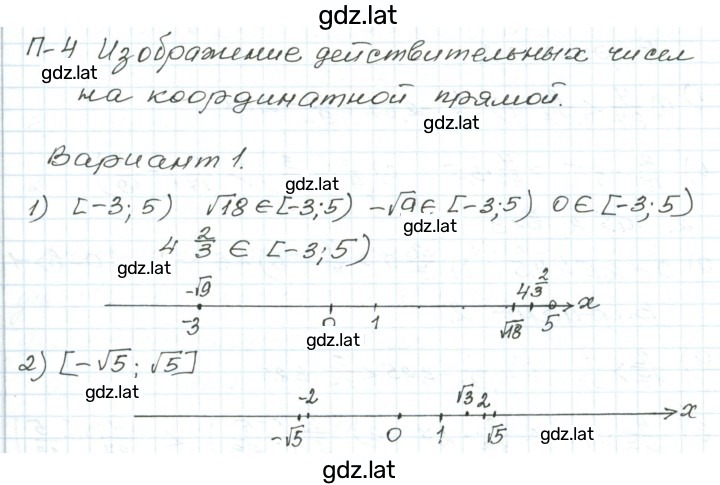 gdz.lat
П-4 Изображение действительных чисел
gdz.lat
на координатной прямой.
gdz.lat
Вариант 1.
gdz.lat
1) [-3; 5) √18 ∈ [-3; 5) -√9 ∈ [-3; 5) 0 ∈ [-3; 5)
gdz.lat
4 2/3 ∈ [-3; 5)
gdz.lat
-√9 4 2/3
-3 0 1 √18 5 x
gdz.lat
2) [-√5; √5]
gdz.lat
-2 √3 2
-√5 0 1 √5 x
gdz.lat
gdz.lat